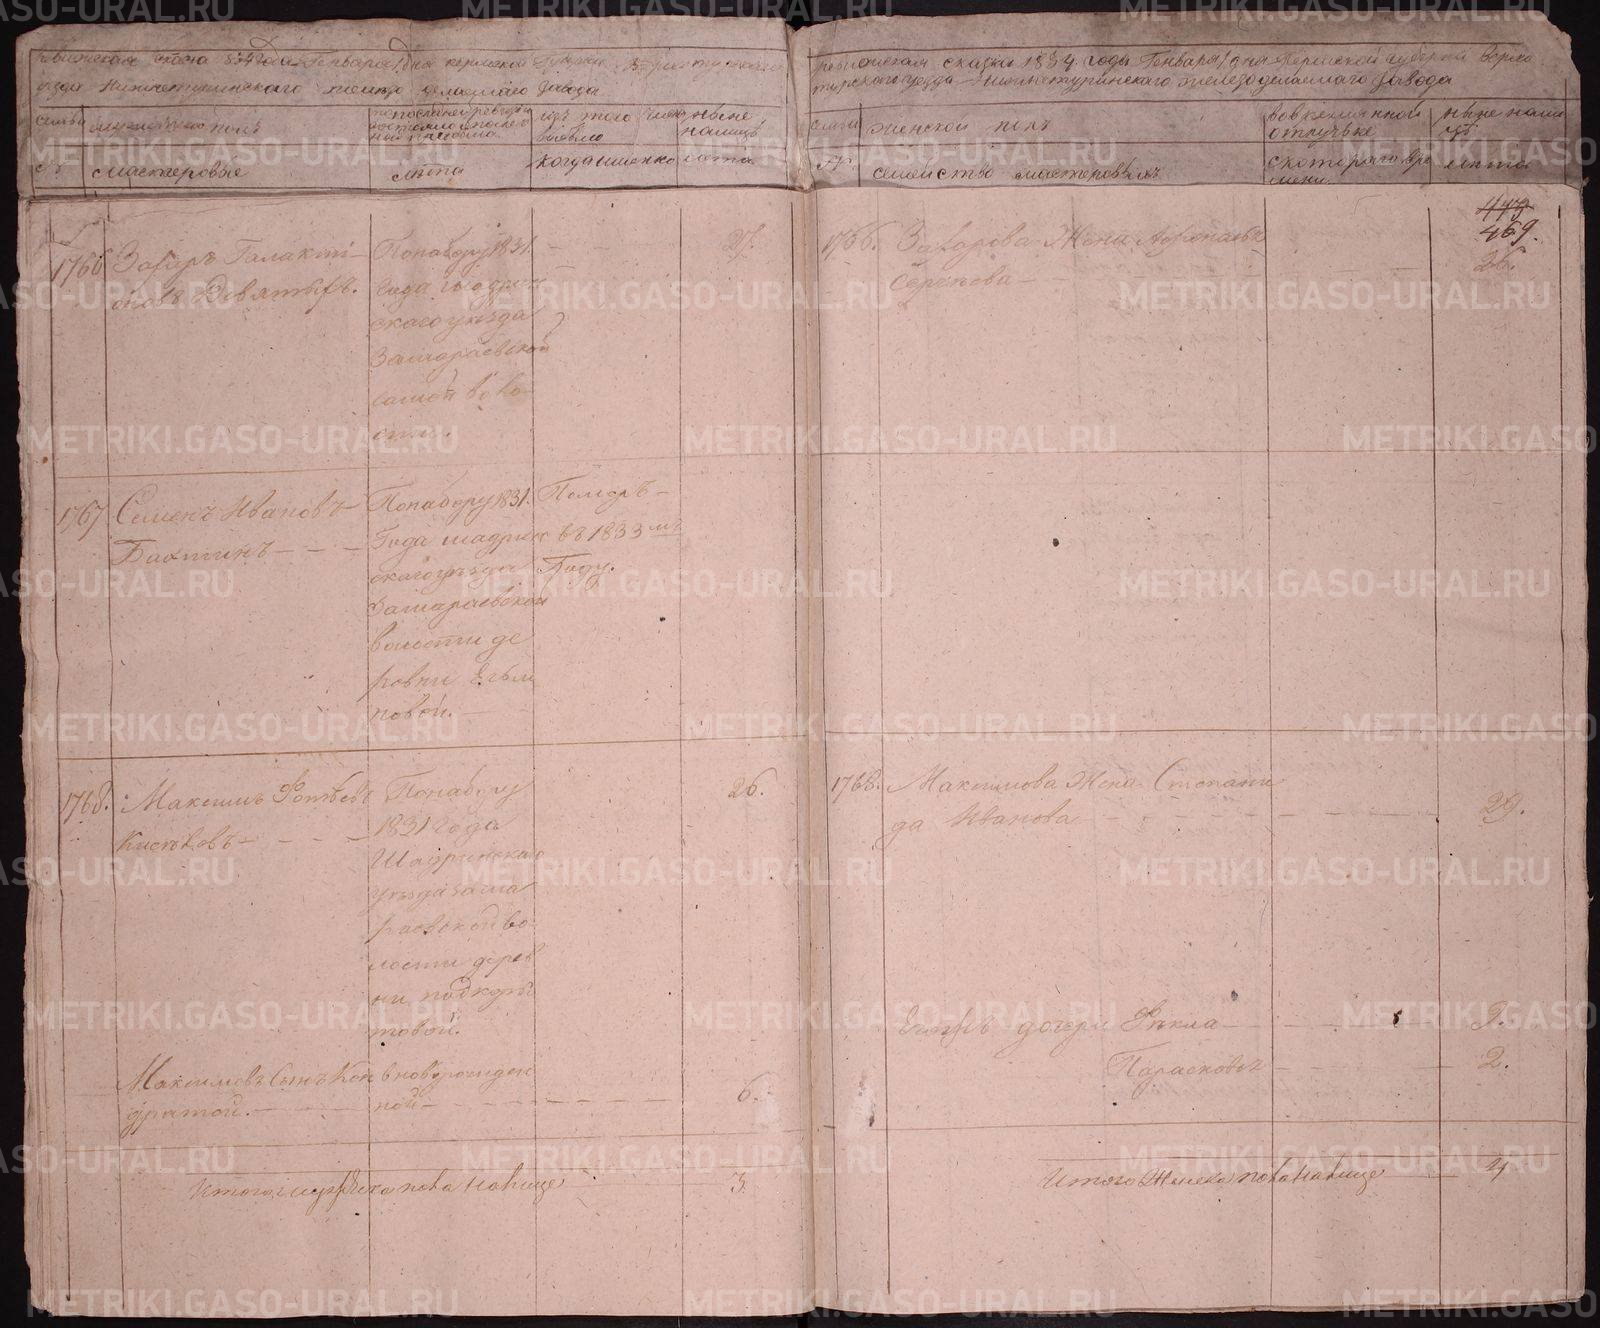 Ревижская скаска 834 года Генваря 1 дня пермской Губернии Верхотурскаго
уезда Нижнетуринского железо делаемаго завода
семьи
мужеской полъ
по последней ревизии состояло и после оной прибыло
изъ того числа выбыло
ныне налицо
№
мастеровые
лета
когда именно
лета
1766
Захаръ Галакти-
оновъ Девятыхъ.
Понабору 1831.
года шадрин
скаго уезда
Замараевской
самой воло
сти.
27.
1767
Семенъ Ивановъ
Бахтинъ
Понабору 1831.
Года шадрин
скаго уезда
Замараевской
волости де
ревни
новой.
Померъ
въ 1833 мъ
Году.
1768.
Максимъ Фотеевъ
Понабору
1831 года
Шадринскаго
уезда зама
раевской во
лости дерев
ни
товой.
26.
Максимовъ Сынъ Кон
дратой.
в новорожден
ной
6.
Итого мужеска пола налице
3.
ревижская сказка 1834 года Генваря 1 дня Пермской губернии Верхо
турскаго уезда Нижнетуринскаго железоделаемаго завода
семьи
женской полъ
вовременной отлучке
ныне нали
цо
№
семейство мастеровыхъ
скотораго вре
мени
лета
443
469.
1766.
Захарова Жена
Сергеева
26.
1768.
Максимова Жена Степани
да Иванова
29.
Егожъ дочери Фекла
9.
Парасковья
2.
Итого Женска пола налице
4